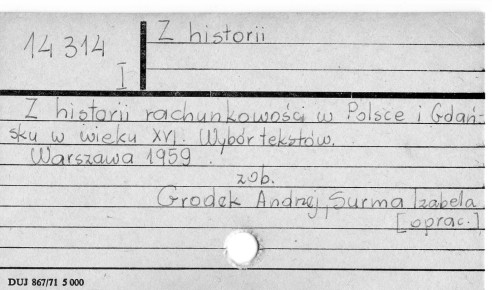 14 314
I
Z historii
Z historii rachunkowości w Polsce i Gdań-
sku w wieku XVI. Wybór tekstów.
Warszawa 1959.
zob.
Grodek Andrzej, Surma Izabela
[oprac.]
DUJ 867/71 5 000